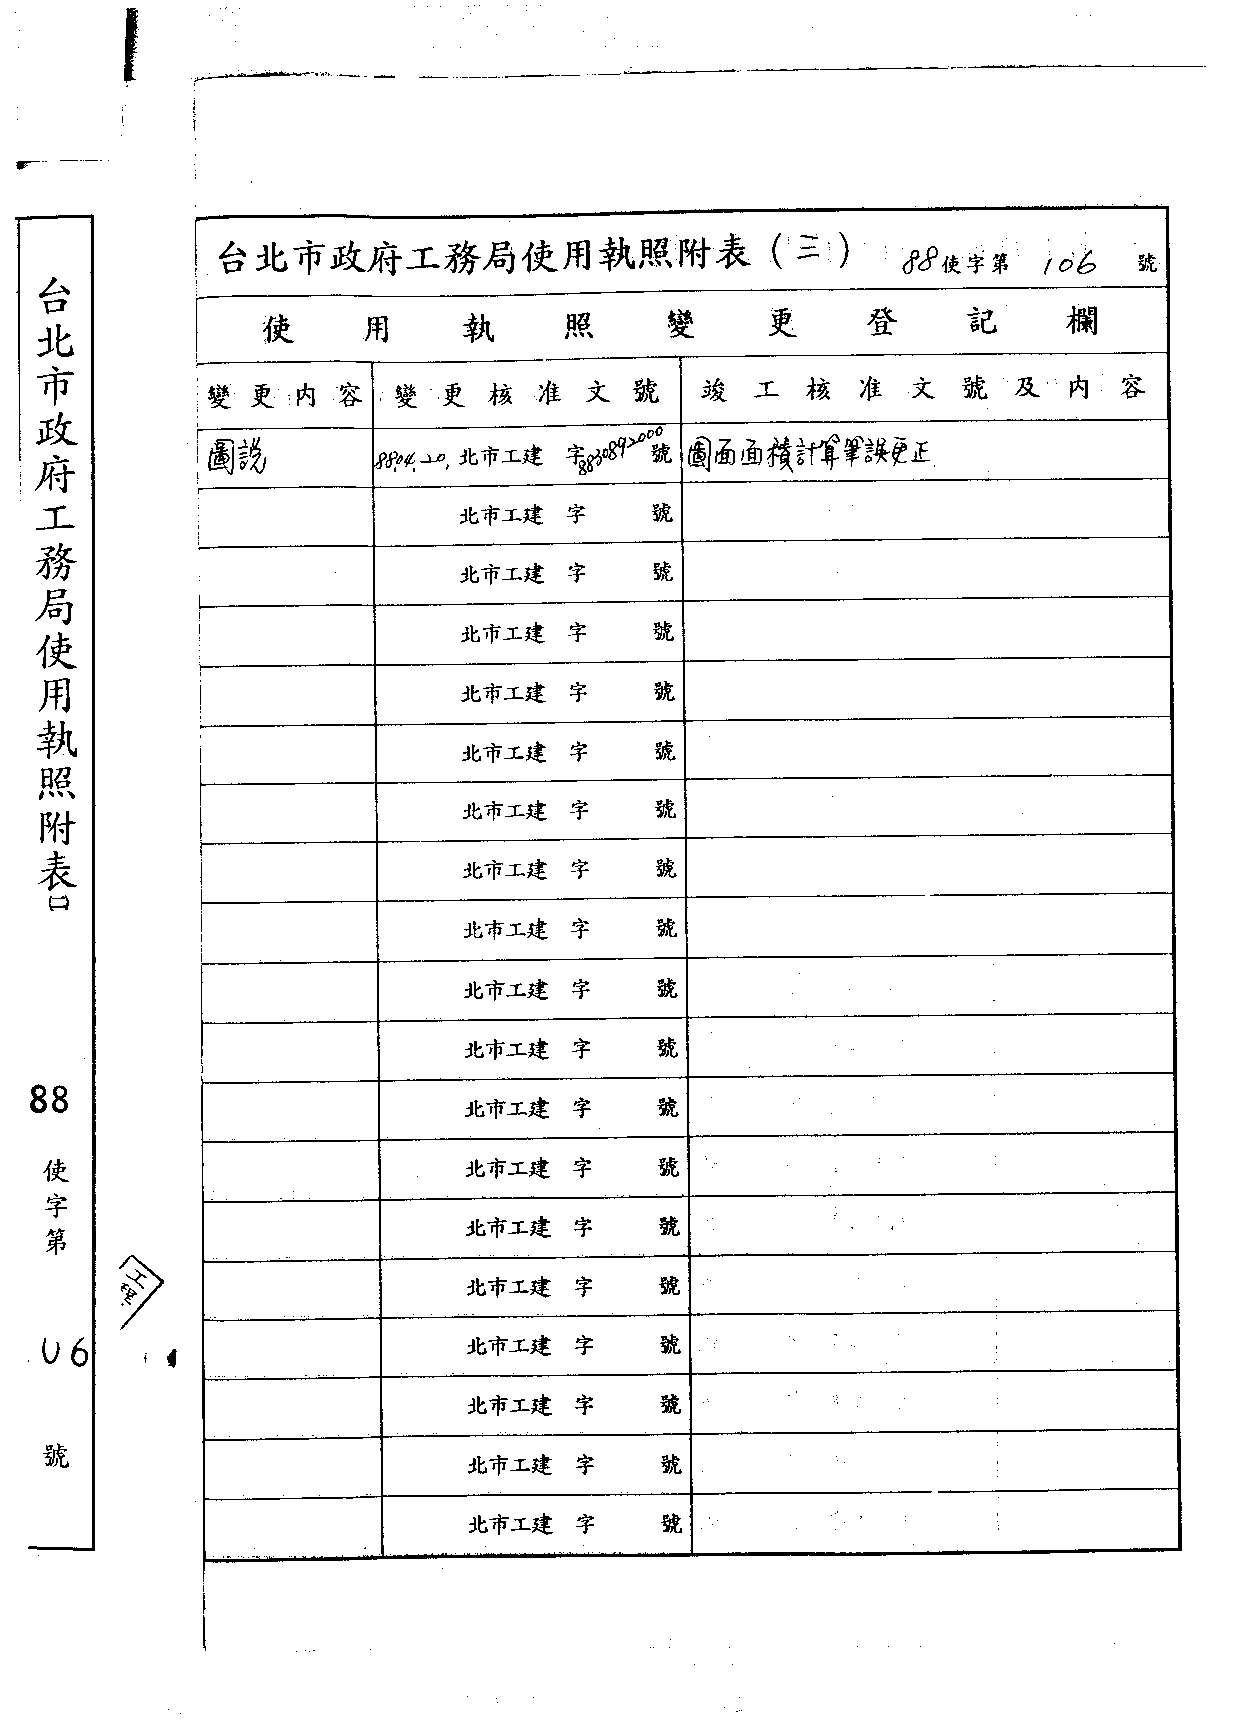 台北市政府工務局使用執照附表(三) 88使字第 106 號
使用執照變更登記欄
變更內容 變更核准文號 竣工核准文號及內容
圖說 88.04.20. 北市工建 字8830892000號 圖面面積計算筆誤更正
北市工建 字 號
北市工建 字 號
北市工建 字 號
北市工建 字 號
北市工建 字 號
北市工建 字 號
北市工建 字 號
北市工建 字 號
北市工建 字 號
北市工建 字 號
北市工建 字 號
北市工建 字 號
北市工建 字 號
北市工建 字 號
北市工建 字 號
北市工建 字 號
北市工建 字 號
北市工建 字 號
台北市政府工務局使用執照附表㈡
88 使字第 06 號